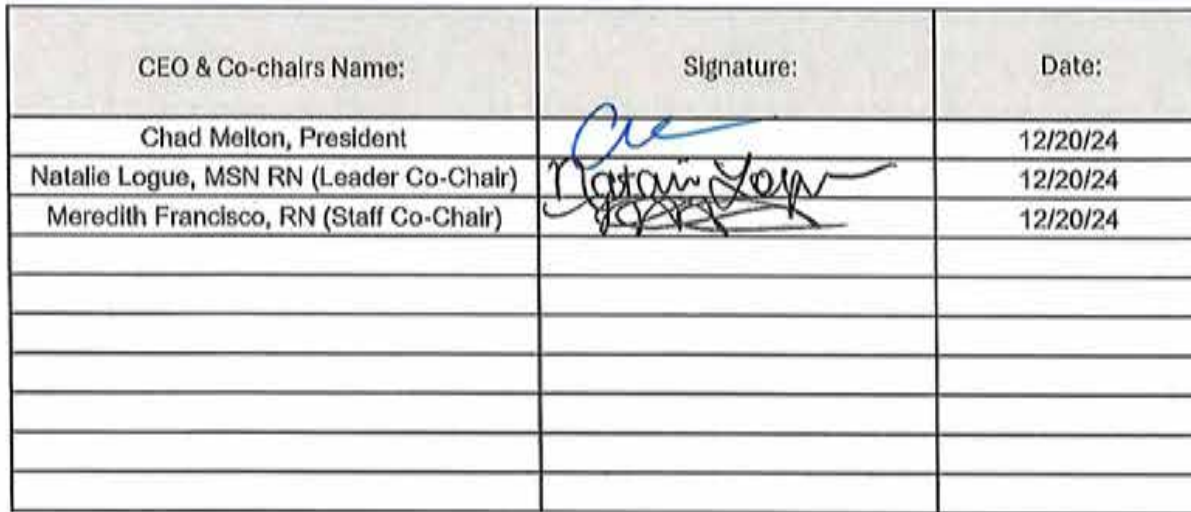 CEO & Co-chairs Name: Signature: Date:
Chad Melton, President 12/20/24
Natalie Logue, MSN RN (Leader Co-Chair) 12/20/24
Meredith Francisco, RN (Staff Co-Chair) 12/20/24